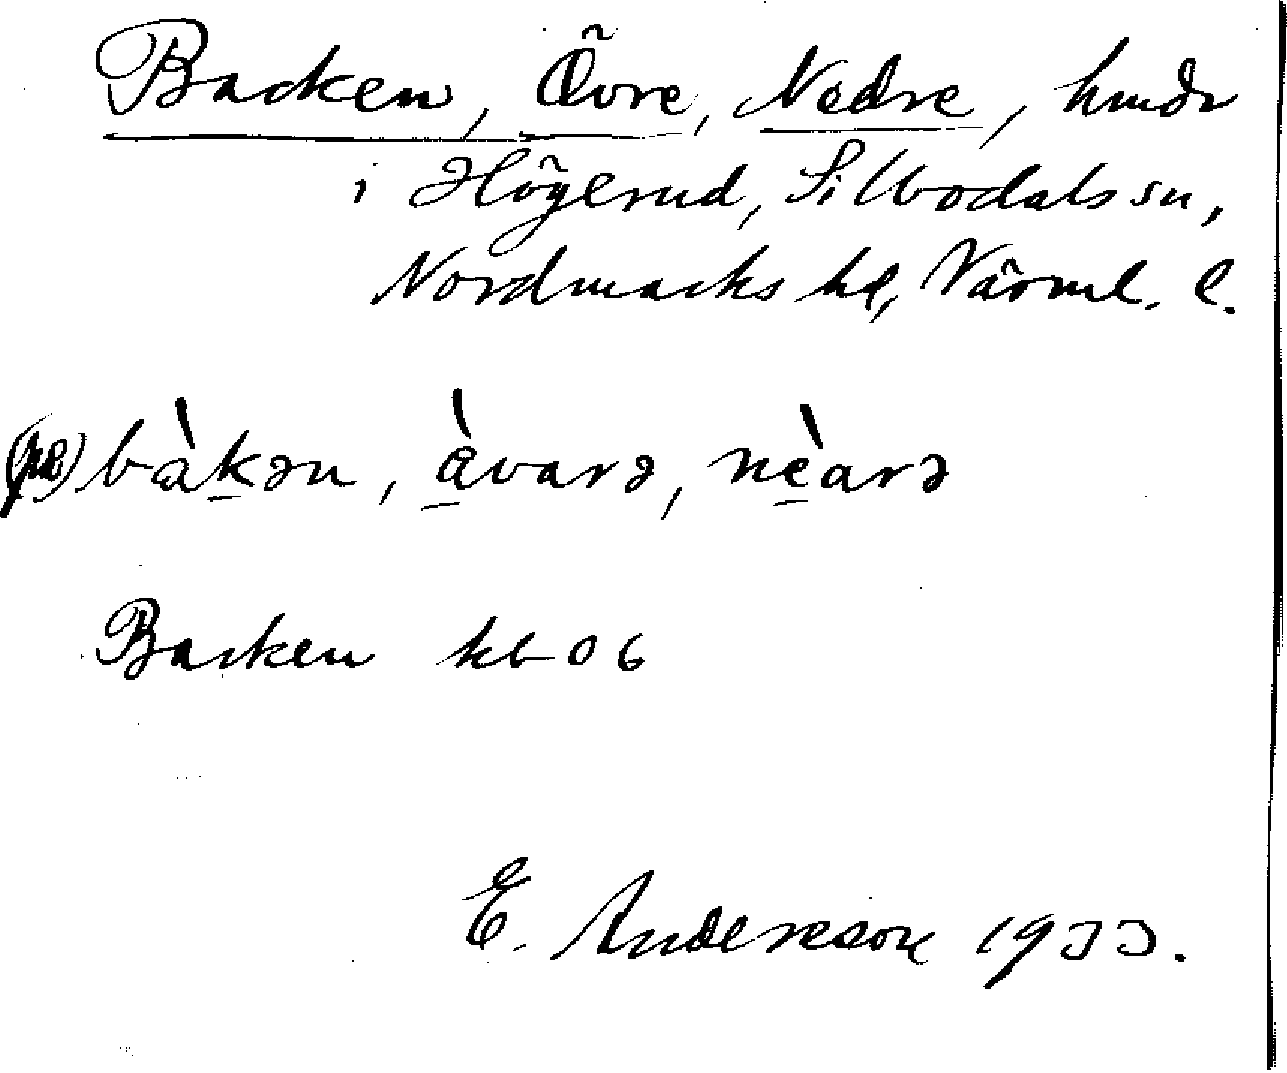 Backen, Övre, Nedre, hmdr
i Högerud, Silbodals sn,
Nordmarks hd, Värml. l.
bàkən, àvarə, nèarə
Backen kb 06
E. Andersson 1933.